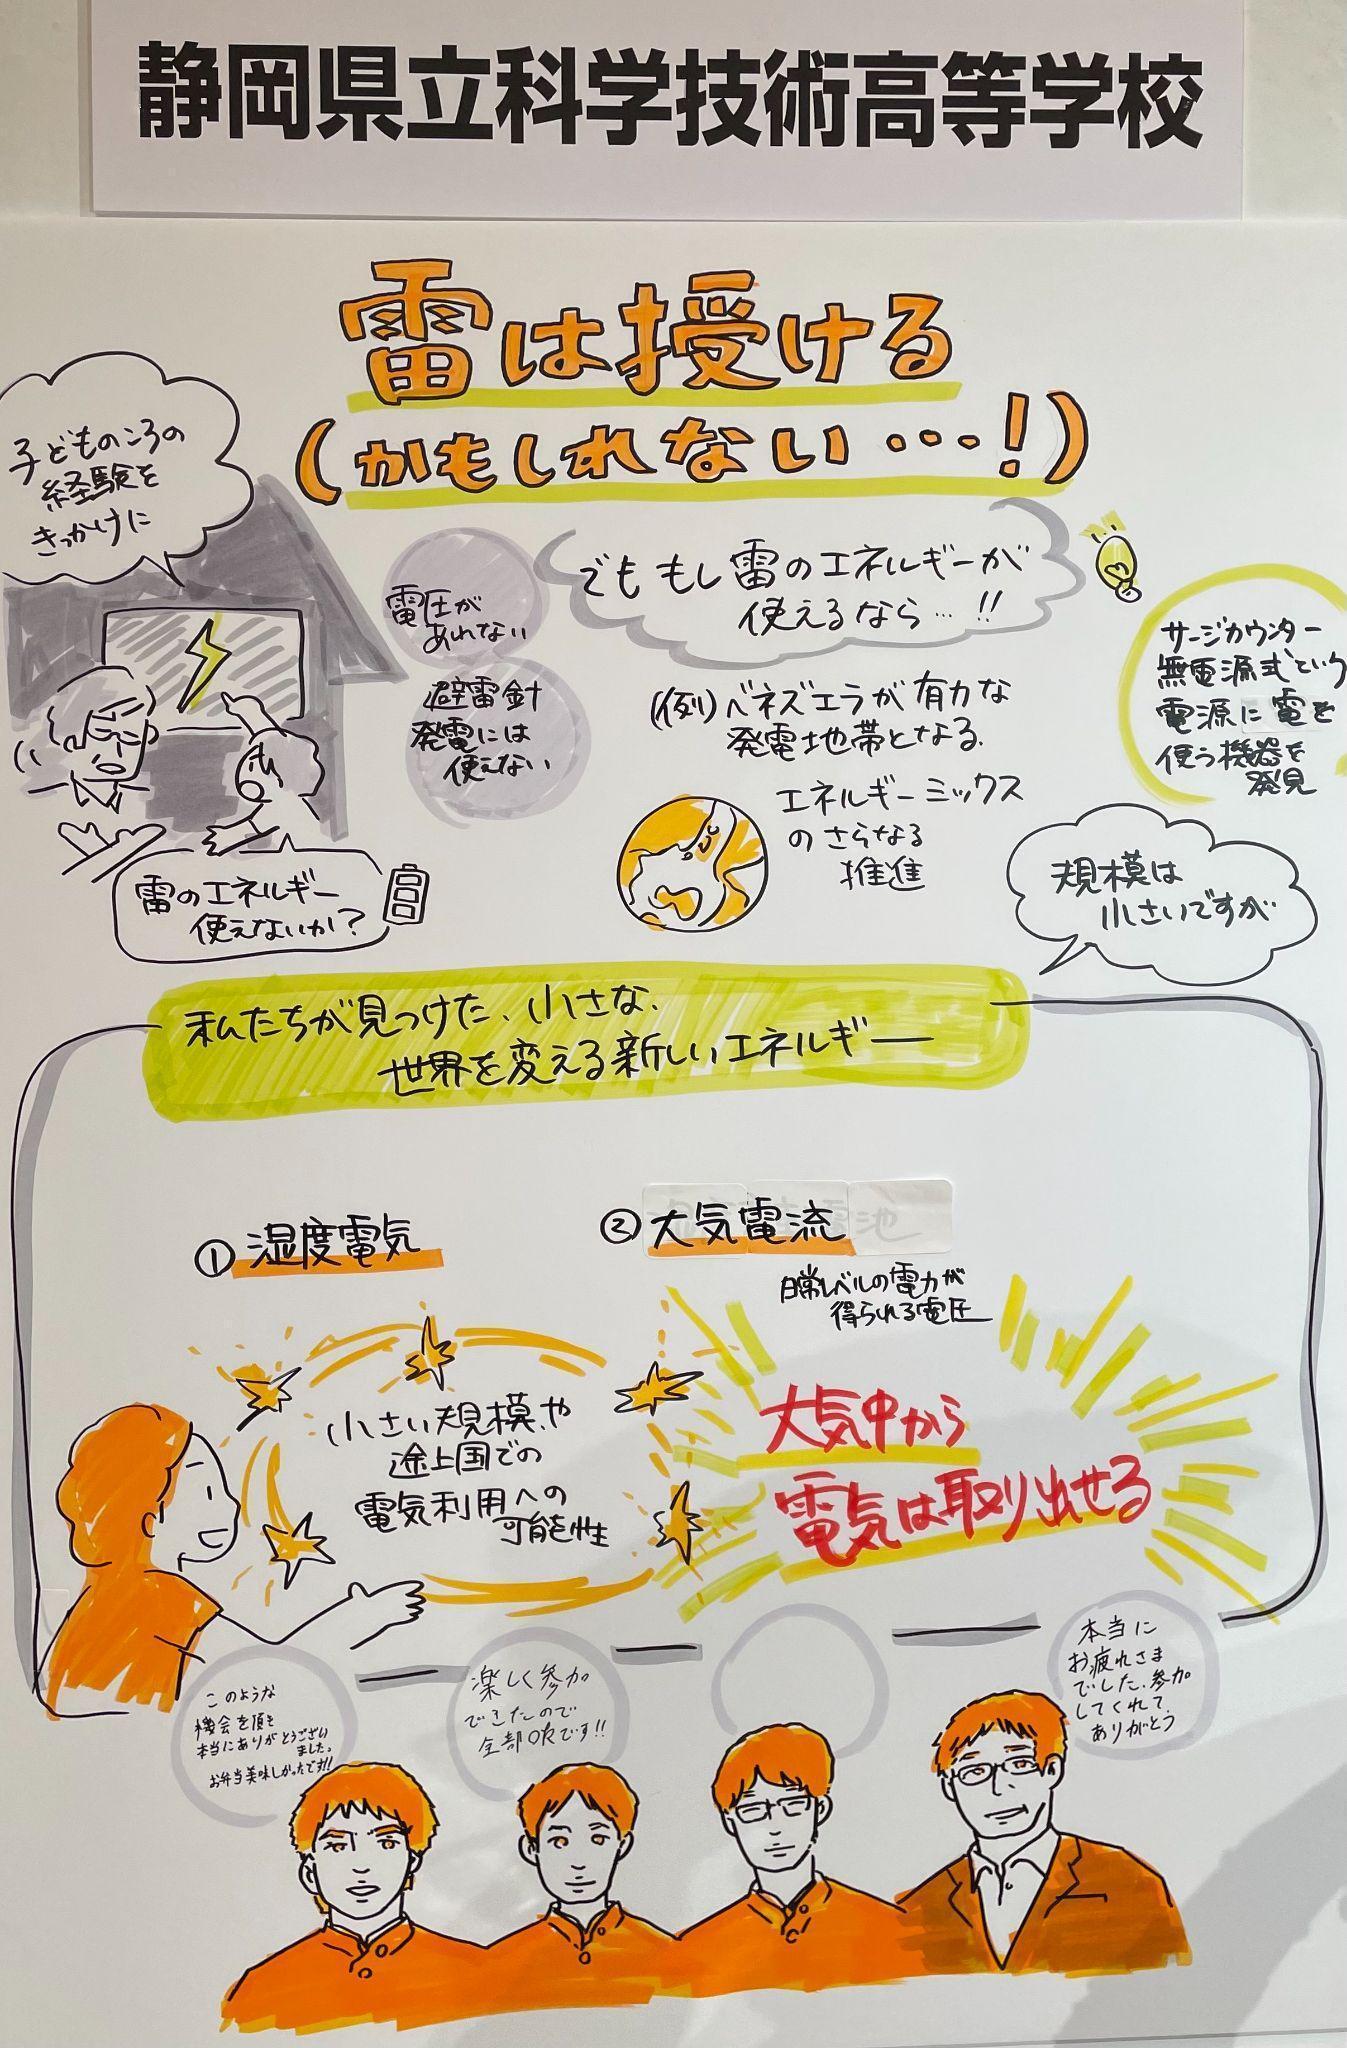 静岡県立科学技術高等学校
雷は授ける
(かもしれない…!)
子どものころの
経験を
きっかけに
電圧が
あれない
避雷針
発電には
使えない
でももし雷のエネルギーが
使えるなら…!!
(例)ベネズエラが有力な
発電地帯となる.
エネルギーミックス
のさらなる
推進
サージカウンター
無電源式という
電源に雷を
使う機器を
発見
雷のエネルギー
使えないか?
規模は
小さいですが
私たちが見つけた、小さな、
世界を変える新しいエネルギー
① 湿度電気
② 大気電流
池
日常レベルの電力が
得られる電圧
小さい規模や
途上国での
電気利用への
可能性
大気中から
電気は取り出せる
このような
機会を頂き
本当にありがとうござい
ました。
お弁当美味しかったです!!
楽しく参加
できたので
全部OKです!!
本当に
お疲れさま
でした、参加
してくれて
ありがとう